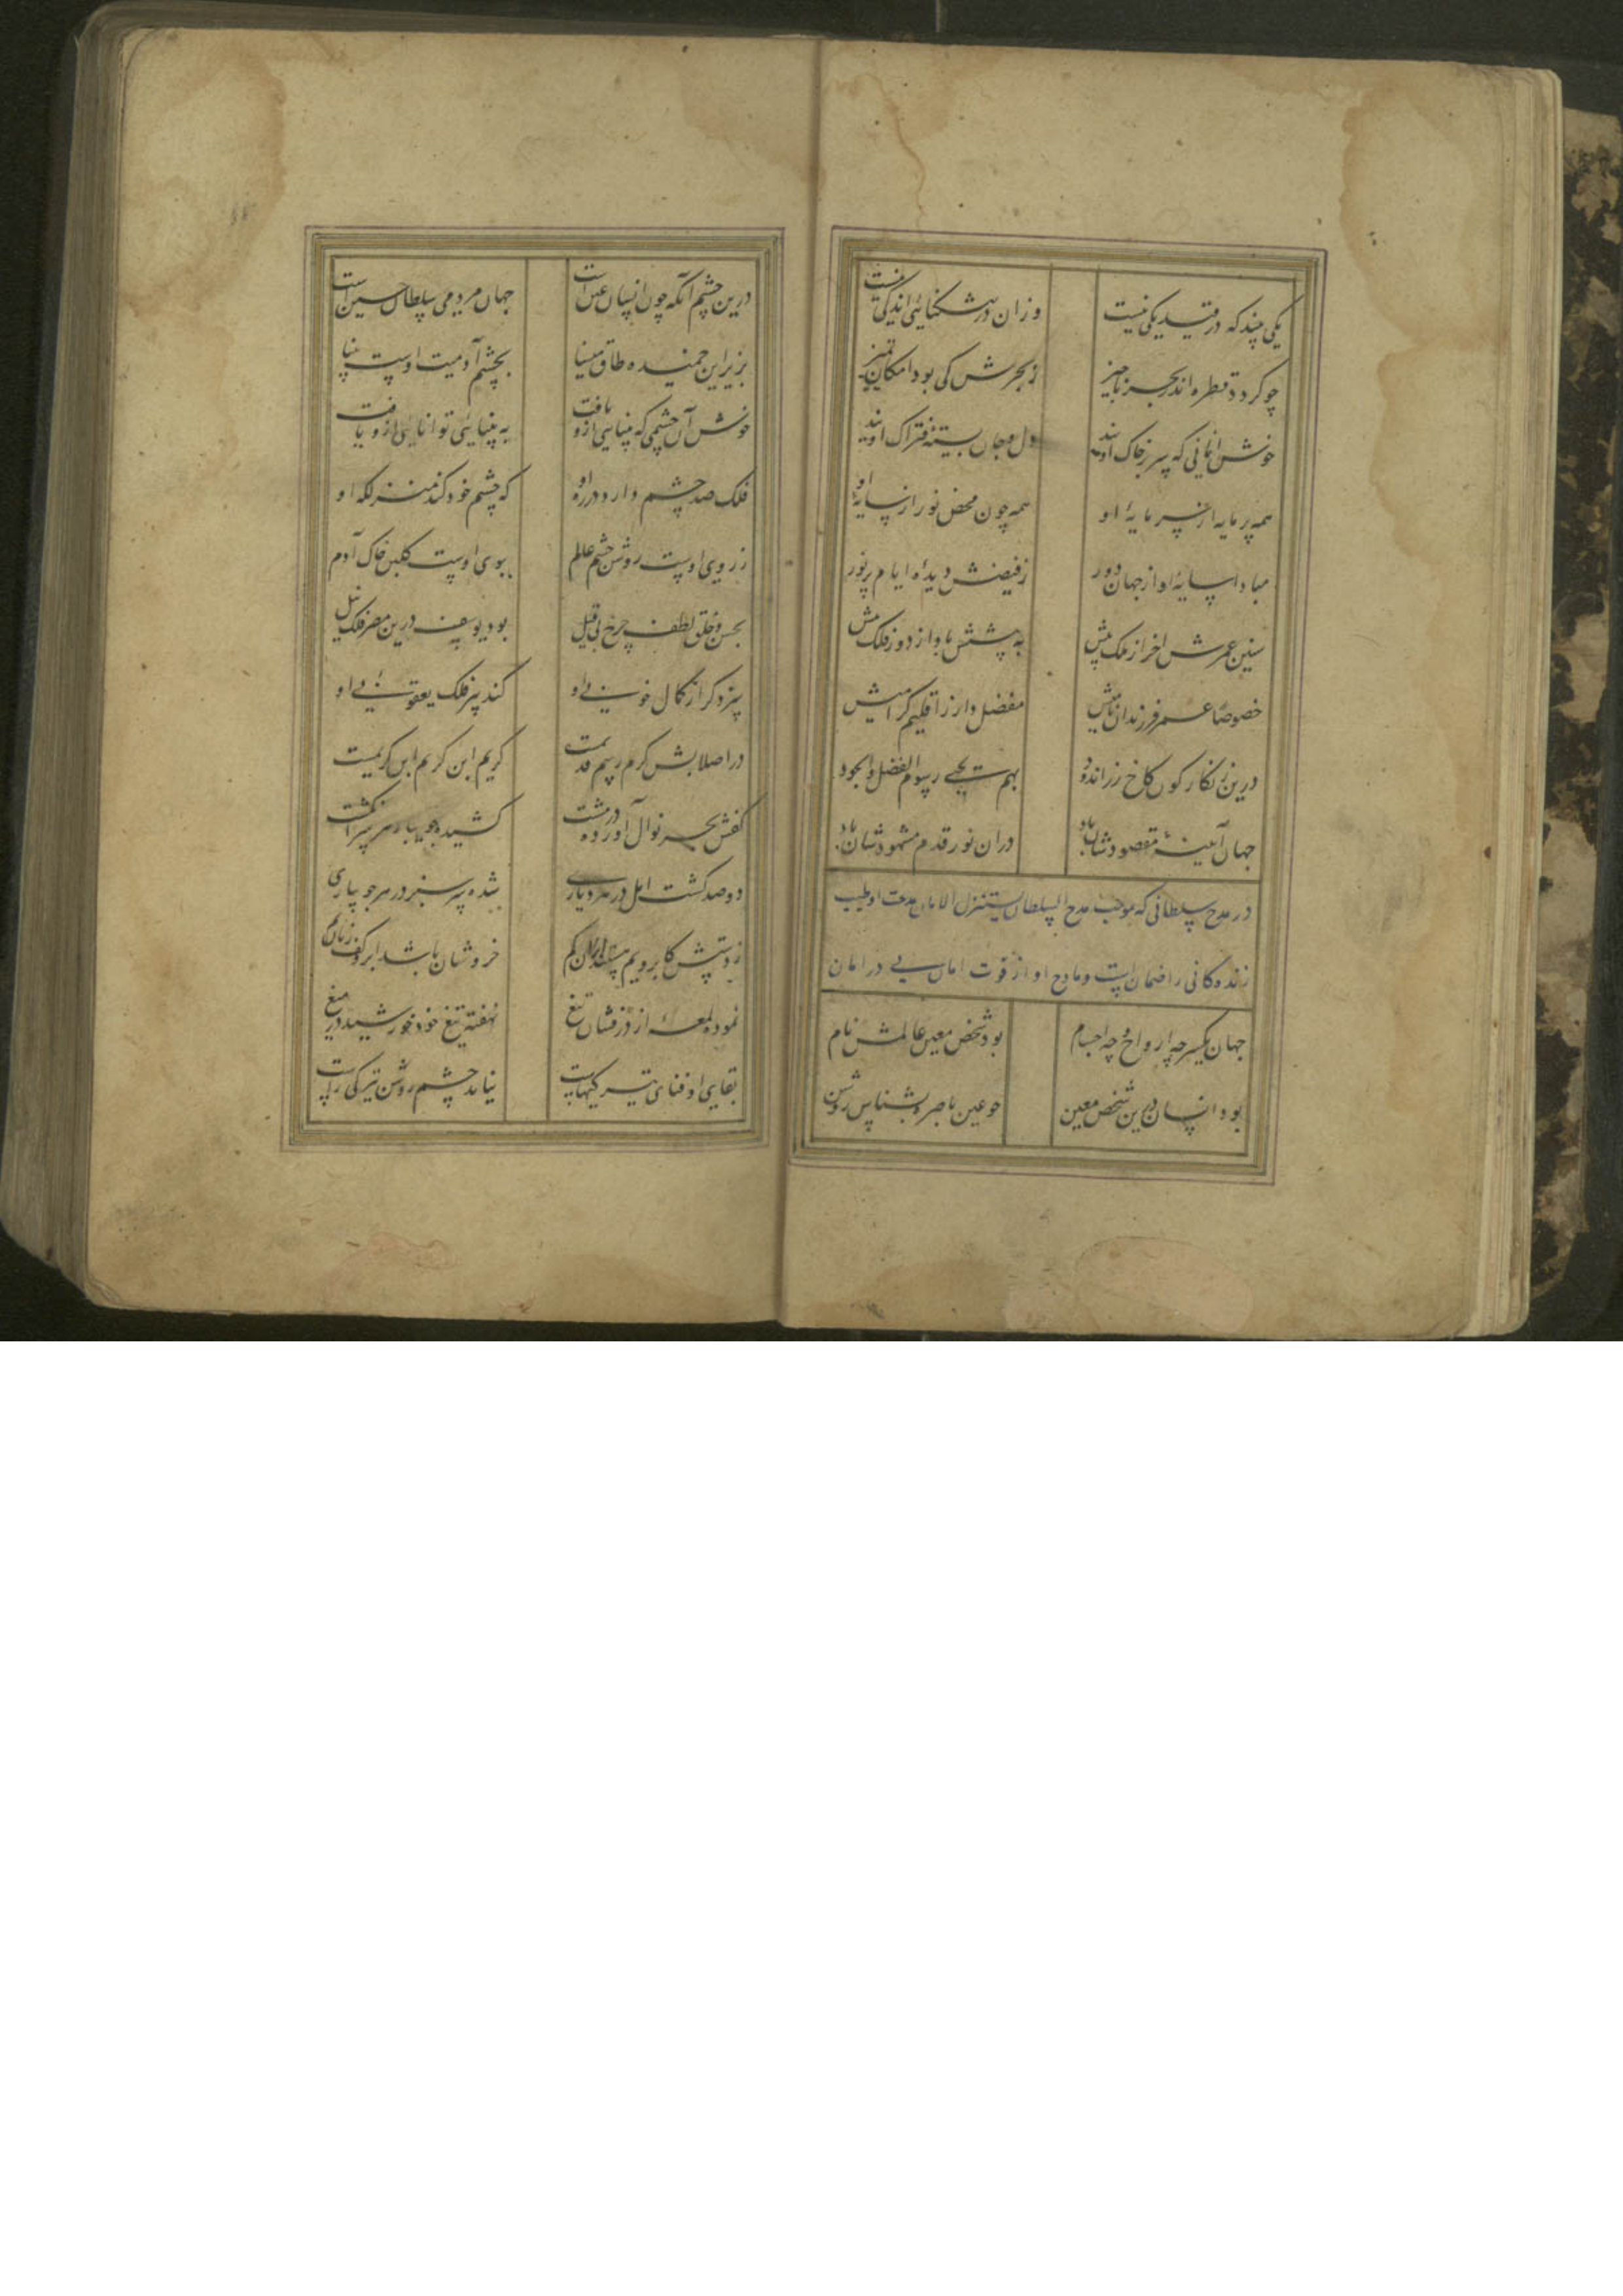 یکی بیند که در قید یکی نیست
وزان در تنگنای اندکی نیست
چو گردد قطره اندر بحر ناچیز
ز بحرش کی بود امکان تمییز
خوش آنانی که سر بر خاک اویند
دل و جان بسته فتراک اویند
همه پر مایه از سرمایهٔ او
همه چون محض نور از سایهٔ او
مبادا سایهٔ او از جهان دور
ز فیضش دیدهٔ ایام پر نور
سنین عمرش اخر از ملک بیش
خصوصا عمر فرزندان نامیش
مفضل وارز اقلیم گرامیش
درین زنگارگون کاخ زر اندود
بهم یحیی رسوم الفضل و الجود
جهان آیینهٔ مقصودشان باد
دران نور قدم مشهودشان باد
در مدح سلطانی که موجب مدح السلطان یستنزل الامان مدحت او طیب
زنده کانی را ضمان است و مادح او از فوت امانی در امان
جهان یکسر چه ارواح و چه اجسام
بود شخص معین عالمش نام
بود انسان درین شخص معین
چو عین باصره بشناس روشن
درین چشم آنکه چون انسان عین است
جهان مردمی سلطان حسین است
بزیر این خمیده طاق مینا
بچشم آدمیت اوست بینا
خوش آن چشمی که بینایی ازو یافت
به بینایی توانایی ازو یافت
فلک صد چشم دارد در ره او
که چشم خود کند منزلگه او
ز روی اوست روشن چشم عالم
ببوی اوست گلبن خاک آدم
بحسن و خلق و لطف چرخ بی قیل
بود یوسف درین مصر فلک نیل
سزد گر از کمال خوبی او
کند پیر فلک یعقوبی او
در اصلابش کرم رسم قدیمست
کریم ابن کریم ابن کریمست
کفش بحر نوال آورده در مشت
کشیده جویبار از هر سر انگشت
دو صد کشت امل در هر دیاری
شده سرسبز در هر جویباری
خروشان باشد ابر و کف زنان یم
نموده لمعهٔ از درفشان تیغ
نهفته تیغ خود خورشید در میغ
بقای او فنای تیره کیهاست
نیاید چشم روشن تیرگی راست